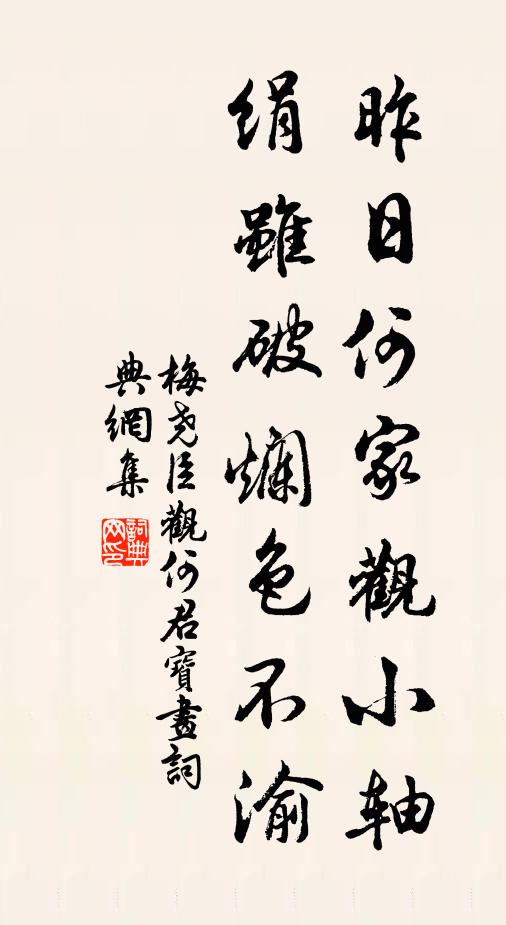 昨日何家觀小軸
絹雖破爛色不渝
梅堯臣觀何君寶畫詞
典網集
詞典网印